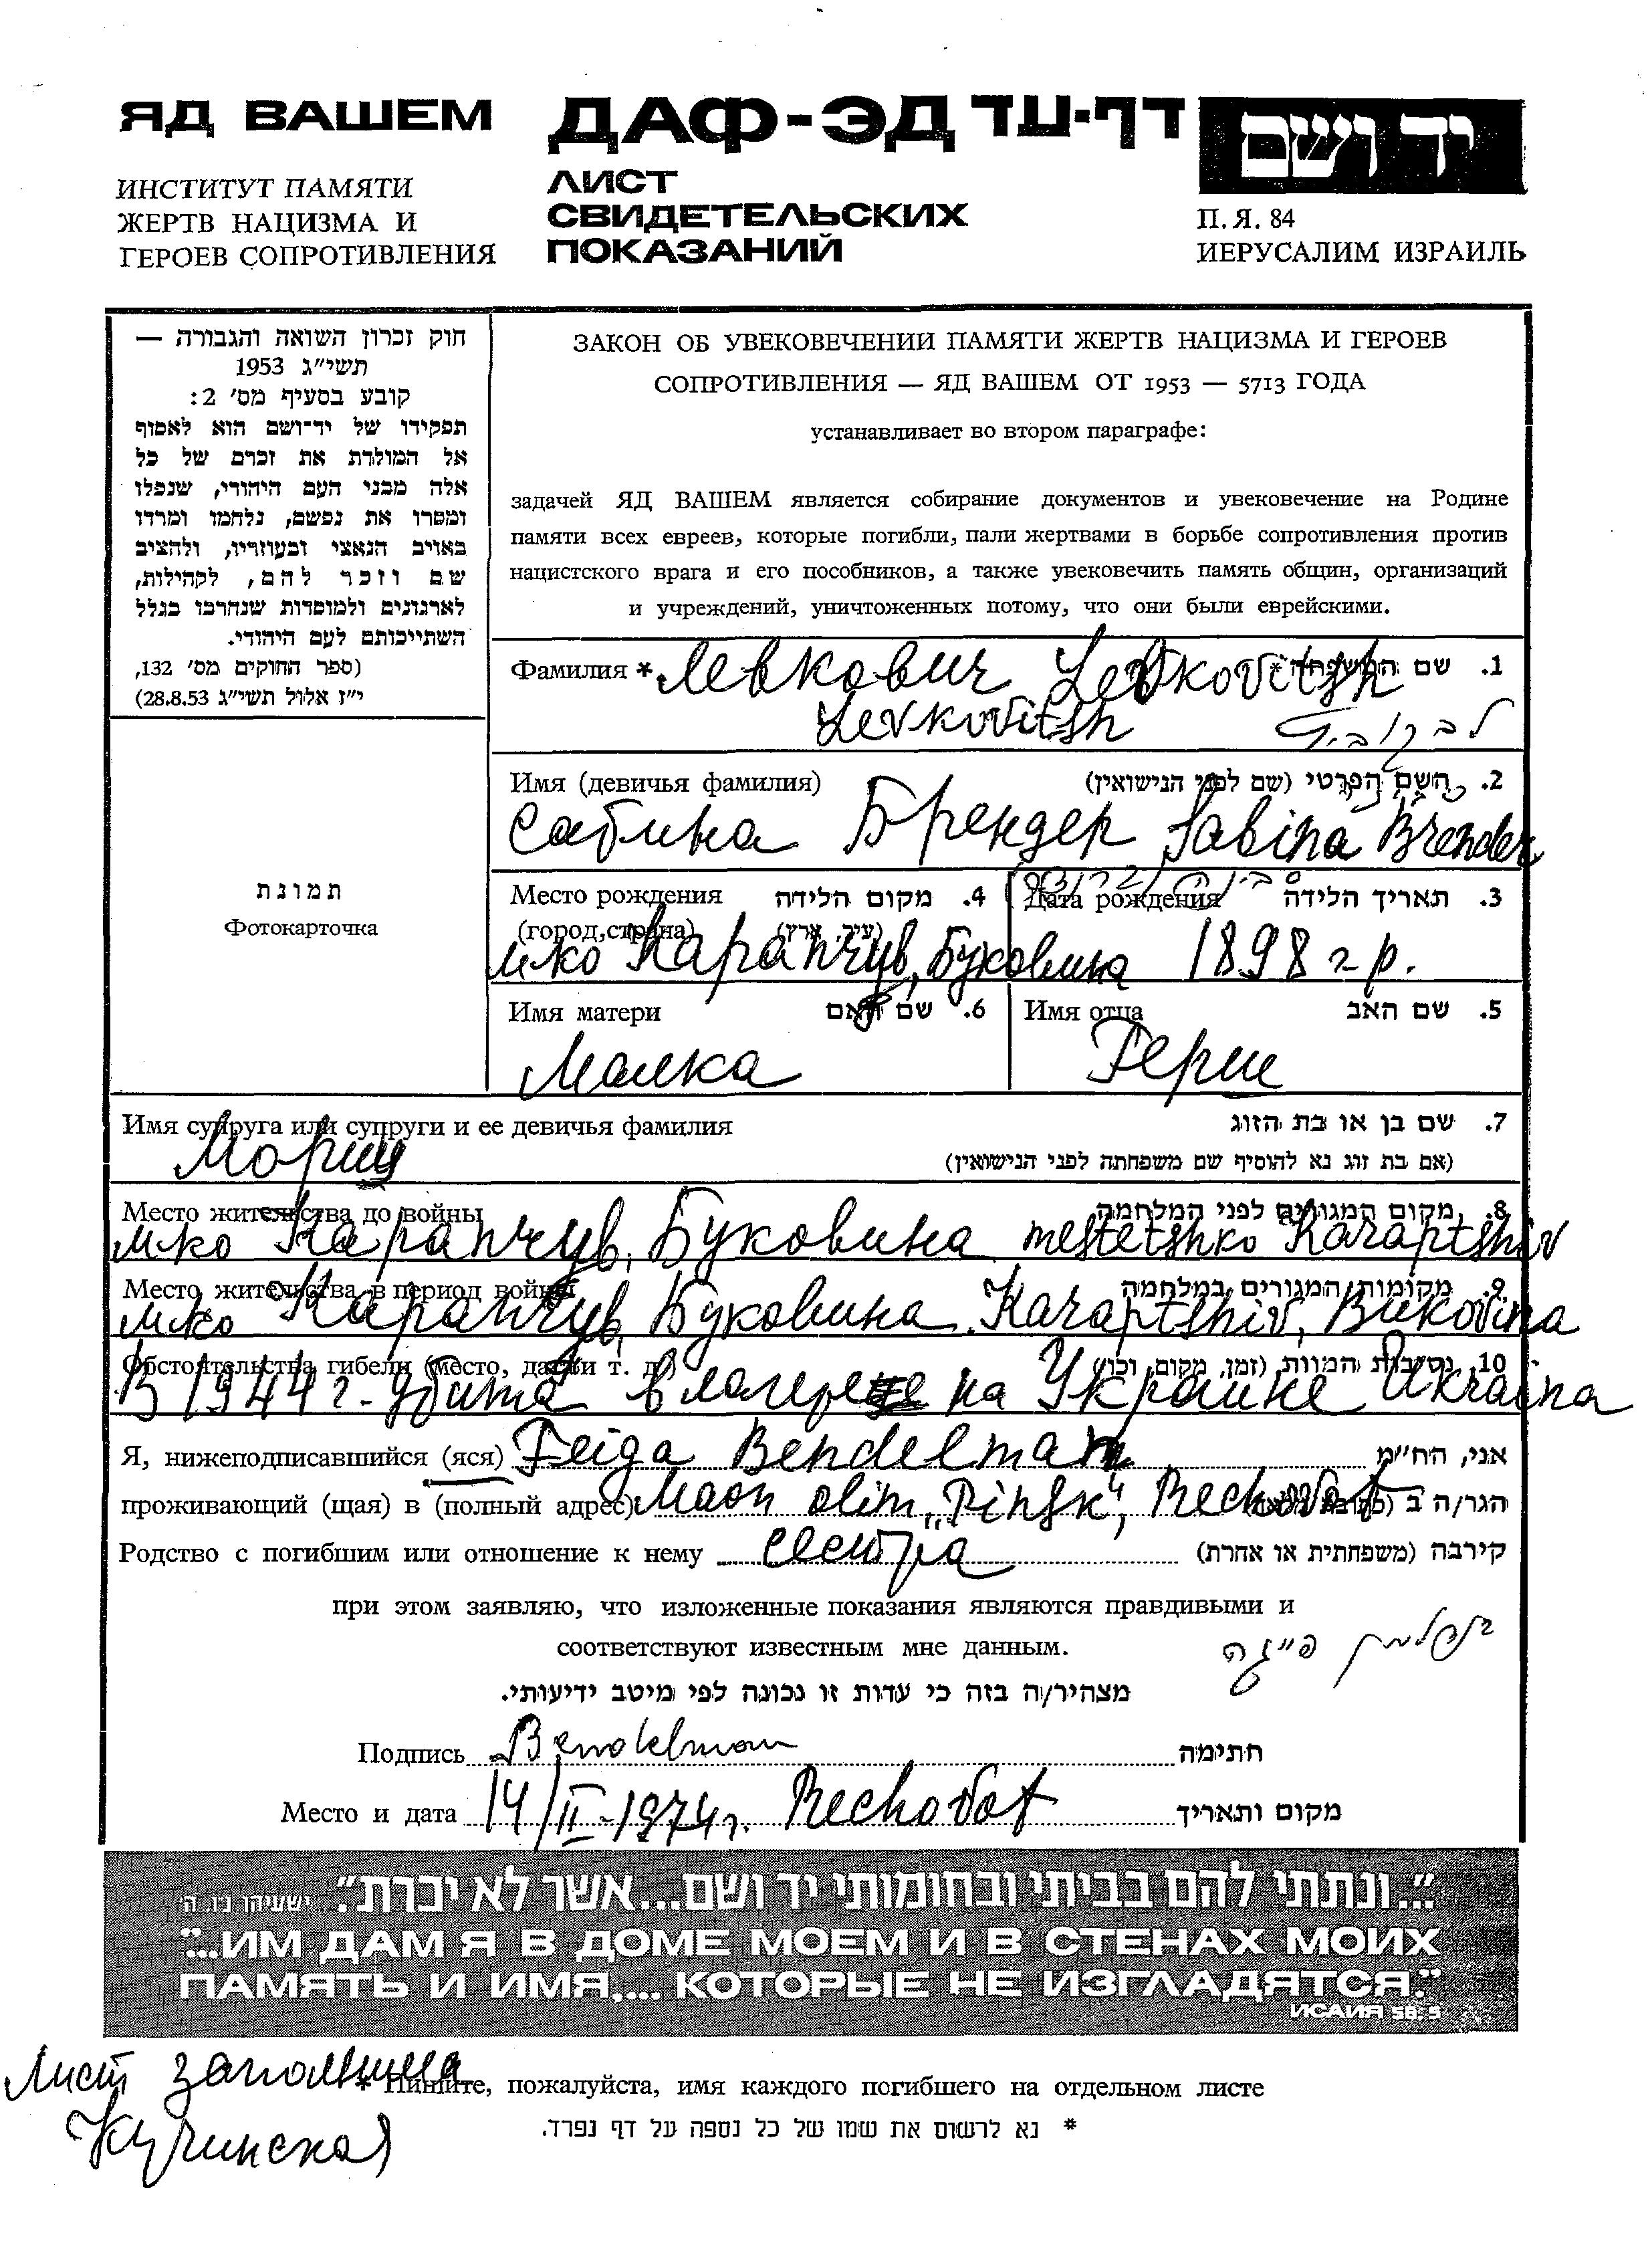 ЯД ВАШЕМ
ИНСТИТУТ ПАМЯТИ
ЖЕРТВ НАЦИЗМА И
ГЕРОЕВ СОПРОТИВЛЕНИЯ
ДАФ-ЭД דף-עד
ЛИСТ
СВИДЕТЕЛЬСКИХ
ПОКАЗАНИЙ
יד ושם
П. Я. 84
ИЕРУСАЛИМ ИЗРАИЛЬ
חוק זכרון השואה והגבורה —
תשי״ג 1953
קובע בסעיף מס׳ 2:
תפקידו של יד־ושם הוא לאסוף
אל המולדת את זכרם של כל
אלה מבני העם היהודי, שנפלו
ומסרו את נפשם, נלחמו ומרדו
באויב הנאצי ובעוזריו, ולהציב
שם וזכר להם, לקהילות,
לארגונים ולמוסדות שנחרבו בגלל
השתייכותם לעם היהודי.
(ספר החוקים מס׳ 132,
י״ז אלול תשי״ג 28.8.53)
ЗАКОН ОБ УВЕКОВЕЧЕНИИ ПАМЯТИ ЖЕРТВ НАЦИЗМА И ГЕРОЕВ
СОПРОТИВЛЕНИЯ — ЯД ВАШЕМ ОТ 1953 — 5713 ГОДА
устанавливает во втором параграфе:
задачей ЯД ВАШЕМ является собирание документов и увековечение на Родине
памяти всех евреев, которые погибли, пали жертвами в борьбе сопротивления против
нацистского врага и его пособников, а также увековечить память общин, организаций
и учреждений, уничтоженных потому, что они были еврейскими.
Фамилия * Левкович Levkovitsh 1. שם המשפחה*
Levkovitsh לבקוביץ
Имя (девичья фамилия) 2. השם הפרטי (שם לפני הנישואין)
Сабина Брендер Sabina Brender
Место рождения 4. מקום הלידה Дата рождения 3. תאריך הלידה
(город, страна) (עיר, ארץ)
м-ко Карапчув, Буковина 1898 г р.
Имя матери 6. שם האם Имя отца 5. שם האב
Малка Герш
תמונת
Фотокарточка
Имя супруга или супруги и ее девичья фамилия 7. שם בן או בת הזוג
Мориц (אם בת זוג נא להוסיף שם משפחתה לפני הנישואין)
Место жительства до войны 8. מקום המגורים לפני המלחמה
м-ко Карапчув, Буковина mestetshko Karaptshiv
Место жительства в период войны 9. מקומות המגורים במלחמה
м-ко Карапчув, Буковина. Karaptshiv, Bukovina
Обстоятельства гибели (место, дата и т. д.) 10. נסיבות המוות (זמן, מקום, וכו׳)
В 1944 г. убита в лагере на Украине Ukraina
Я, нижеподписавшийся (яся) Feiga Bendelman אני, הח״מ
проживающий (щая) в (полный адрес) Maon olim „Pinsk“, Rechovot הגר/ה ב
Родство с погибшим или отношение к нему сестра קירבה (משפחתית או אחרת)
при этом заявляю, что изложенные показания являются правдивыми и
соответствуют известным мне данным.
בנדלמן פייגה
מצהיר/ה בזה כי עדות זו נכונה לפי מיטב ידיעותי.
Подпись Bendelman חתימה
Место и дата 14/II-1974 г. Rechovot מקום ותאריך
״...ונתתי להם בביתי ובחומותי יד ושם...אשר לא יכרת״. ישעיהו נ״ו, ה׳
"...ИМ ДАМ Я В ДОМЕ МОЕМ И В СТЕНАХ МОИХ
ПАМЯТЬ И ИМЯ.... КОТОРЫЕ НЕ ИЗГЛАДЯТСЯ."
ИСАИЯ 56:5
Лист заполнила
Кучинская
* Пишите, пожалуйста, имя каждого погибшего на отдельном листе
* נא לרשום את שמו של כל נספה על דף נפרד.